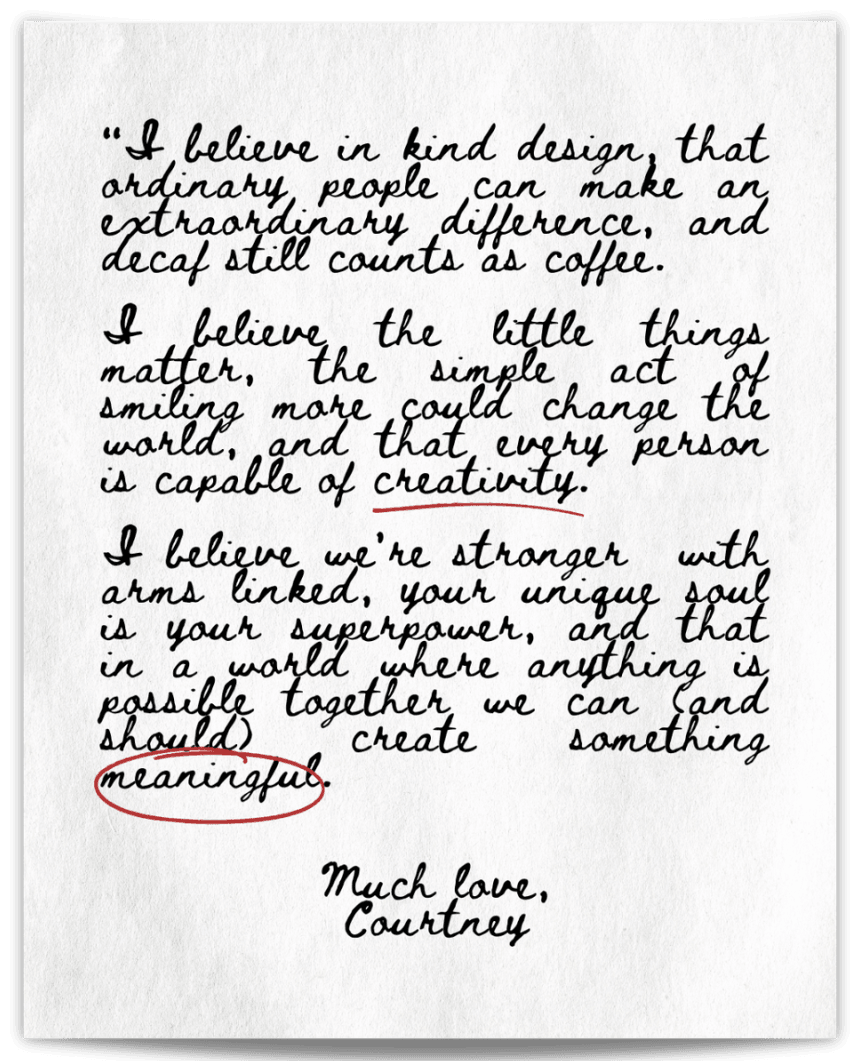 “I believe in kind design, that
ordinary people can make an
extraordinary difference, and
decaf still counts as coffee.
I believe the little things
matter, the simple act of
smiling more could change the
world, and that every person
is capable of creativity.
I believe we're stronger with
arms linked, your unique soul
is your superpower, and that
in a world where anything is
possible together we can (and
should) create something
meaningful.
Much love,
Courtney